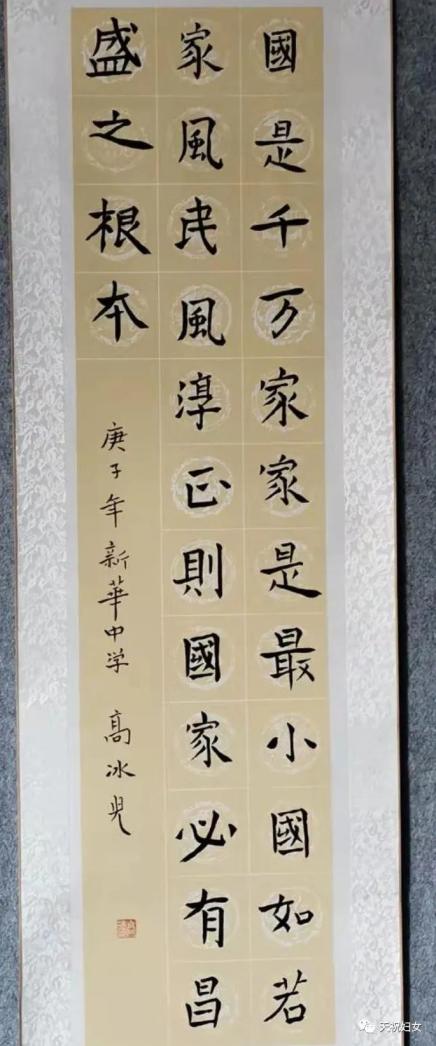 國是千万家家是最小國如若
家風民風淳正則國家必有昌
盛之根本
庚子年新華中学 高冰児
天祝妇女